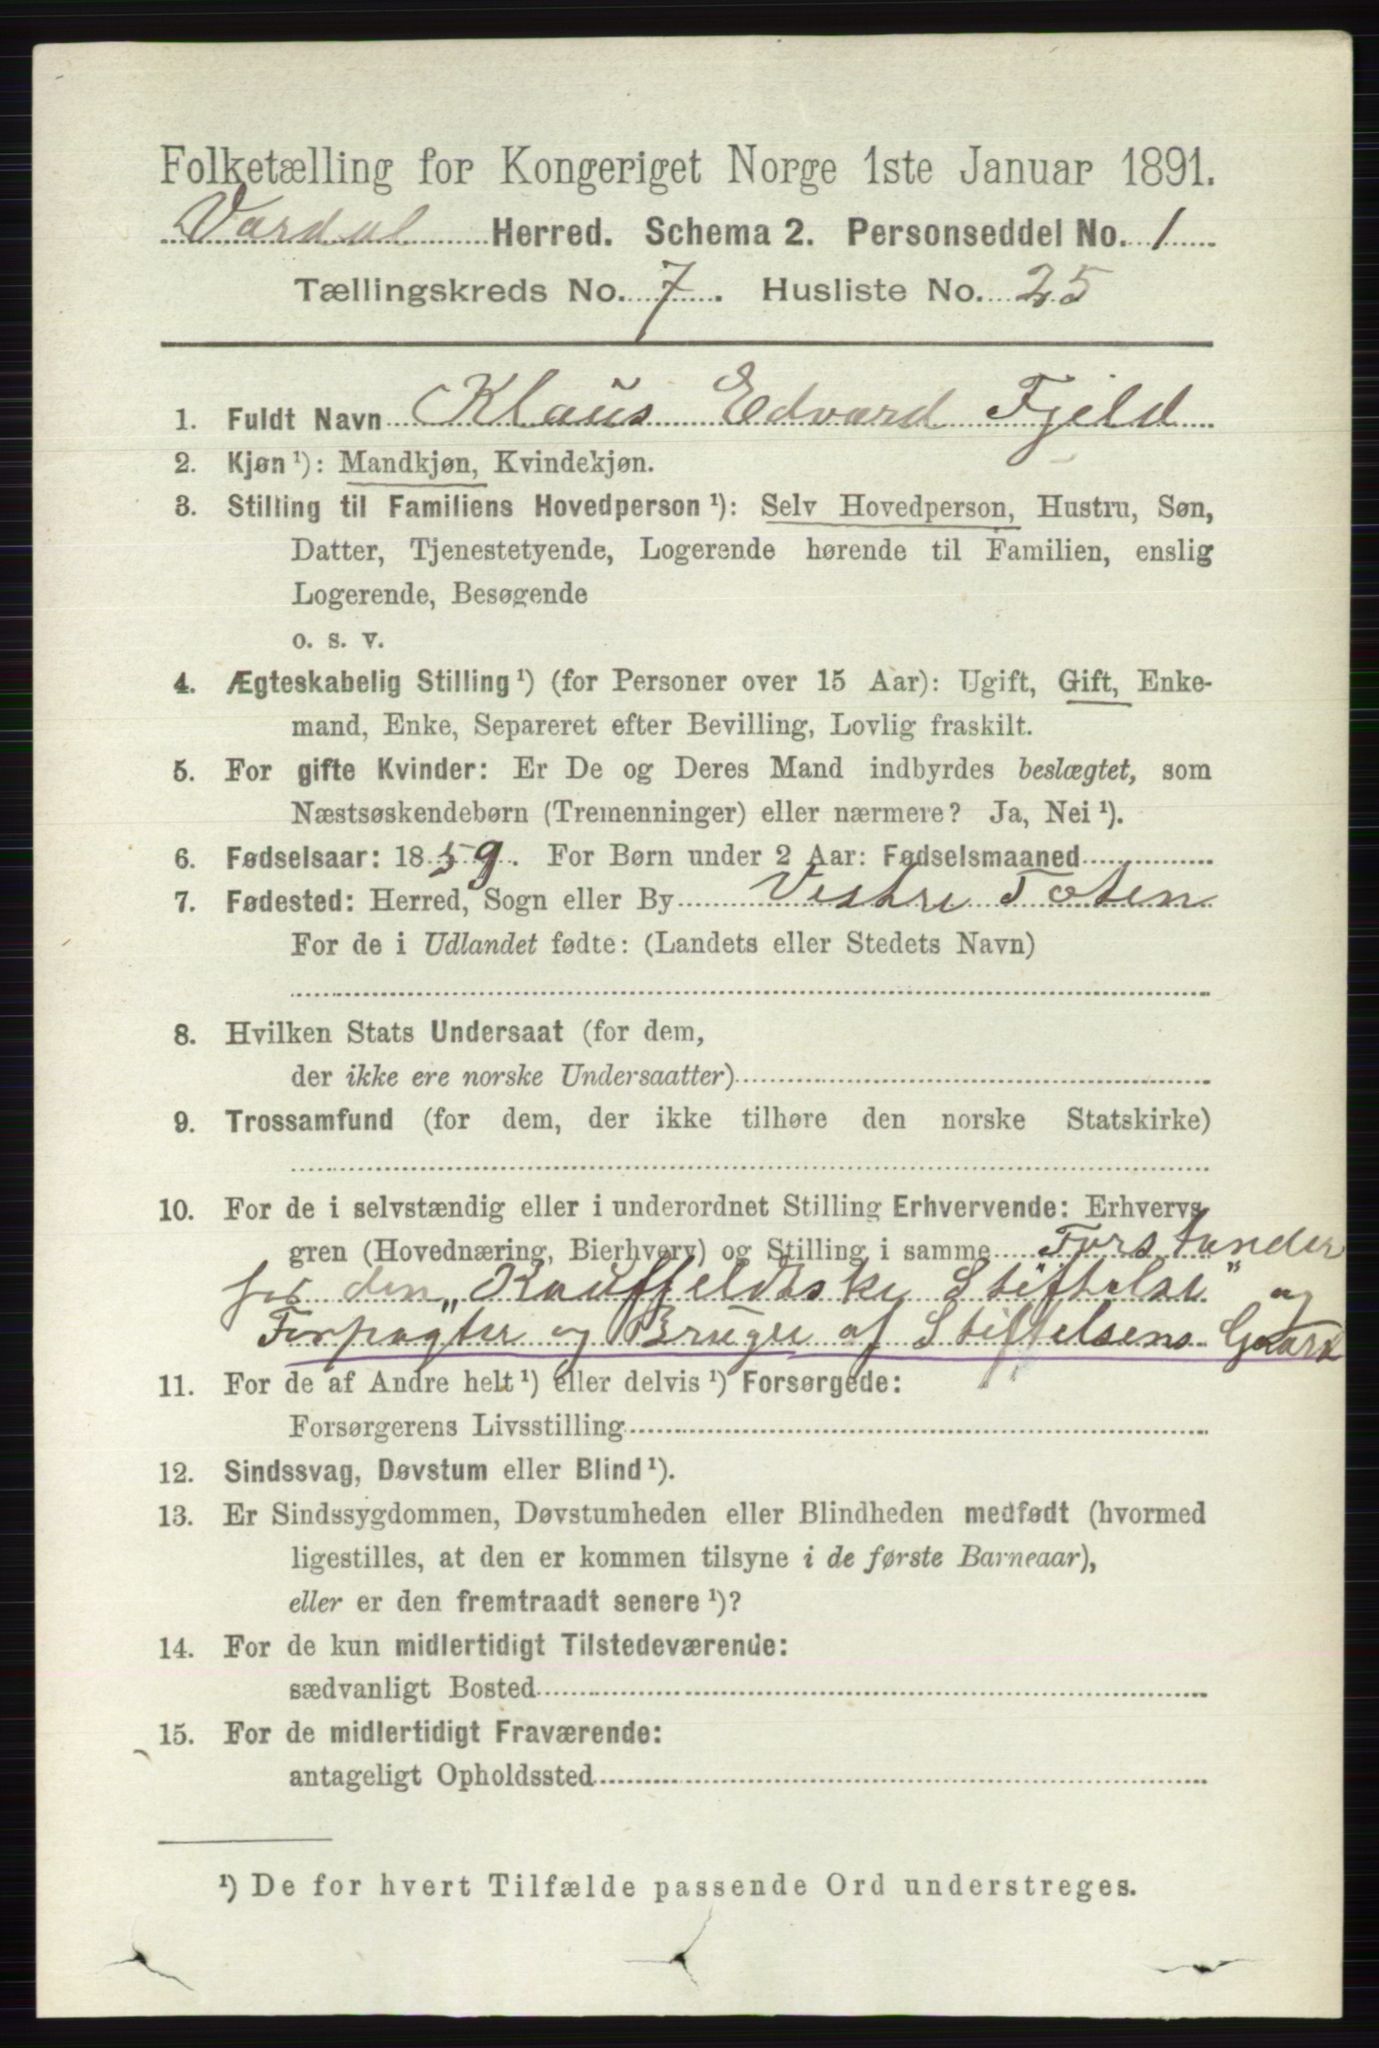 Folketælling for Kongeriget Norge 1ste Januar 1891.
Vardal Herred. Schema 2. Personseddel No. 1
Tællingskreds No. 7. Husliste No. 25
1. Fuldt Navn Klaus Edvard Fjeld
2. Kjøn ¹): Mandkjøn, Kvindekjøn.
3. Stilling til Familiens Hovedperson ¹): Selv Hovedperson, Hustru, Søn,
Datter, Tjenestetyende, Logerende hørende til Familien, enslig
Logerende, Besøgende
o. s. v.
4. Ægteskabelig Stilling ¹) (for Personer over 15 Aar): Ugift, Gift, Enke-
mand, Enke, Separeret efter Bevilling, Lovlig fraskilt.
5. For gifte Kvinder: Er De og Deres Mand indbyrdes beslægtet, som
Næstsøskendebørn (Tremenninger) eller nærmere? Ja, Nei ¹).
6. Fødselsaar: 1859. For Børn under 2 Aar: Fødselsmaaned
7. Fødested: Herred, Sogn eller By Vestre Toten
For de i Udlandet fødte: (Landets eller Stedets Navn)
8. Hvilken Stats Undersaat (for dem,
der ikke ere norske Undersaatter)
9. Trossamfund (for dem, der ikke tilhøre den norske Statskirke)
10. For de i selvstændig eller i underordnet Stilling Erhvervende: Erhvervs
gren (Hovednæring, Bierhverv) og Stilling i samme Forstander
for den "Kauffeldtske Stiftelse" og
Forpagter og Bruger af Stiftelsens Gaard
11. For de af Andre helt ¹) eller delvis ¹) Forsørgede:
Forsørgerens Livsstilling
12. Sindssvag, Døvstum eller Blind ¹).
13. Er Sindssygdommen, Døvstumheden eller Blindheden medfødt (hvormed
ligestilles, at den er kommen tilsyne i de første Barneaar),
eller er den fremtraadt senere ¹)?
14. For de kun midlertidigt Tilstedeværende:
sædvanligt Bosted
15. For de midlertidigt Fraværende:
antageligt Opholdssted
¹) De for hvert Tilfælde passende Ord understreges.